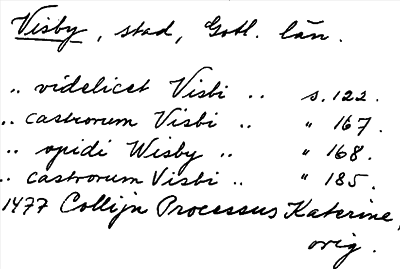 Visby, stad, Gotl. län.
.. videlicet Visbi .. s. 122.
.. castrorum Visbi .. " 167.
.. opidi Wisby .. " 168.
.. castrorum Visbi .. " 185.
1477 Collijn Processus Katerine,
orig.